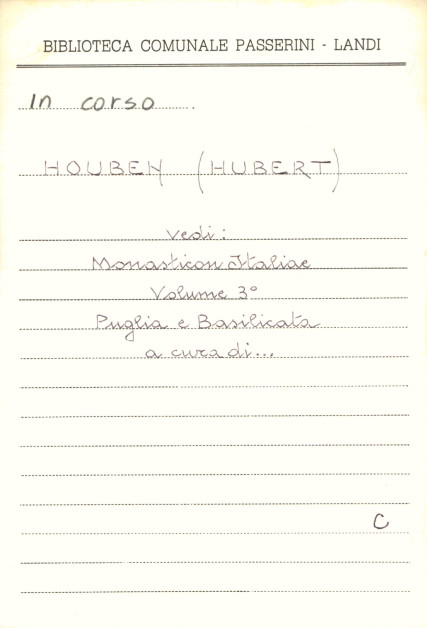 BIBLIOTECA COMUNALE PASSERINI - LANDI
In corso
HOUBEN (HUBERT)
vedi:
Monasticon Italiae
Volume 3º
Puglia e Basilicata
a cura di...
C